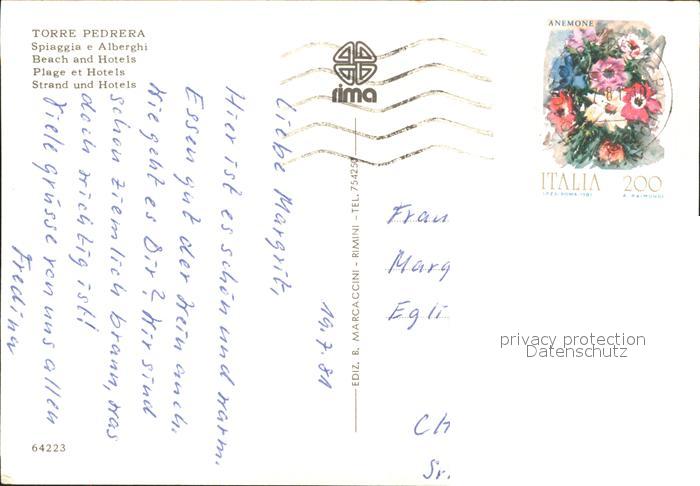 TORRE PEDRERA
Spiaggia e Alberghi
Beach and Hotels
Plage et Hotels
Strand und Hotels
rima
ANEMONE
81
ITALIA 200
I.P.Z.S. ROMA 1981 A. RAIMONDI
19.7.81
Liebe Margrit,
Hier ist es schön und warm.
Essen gut der Wein auch.
Wie geht es Dir? Wir sind
schon ziemlich braun, was
doch richtig ist!
Viele grüsse von uns allen
EDIZ. B. MARCACCINI - RIMINI - TEL. 754250
Frau
Marg
Egli
CH
Sr.
privacy protection
Datenschutz
64223